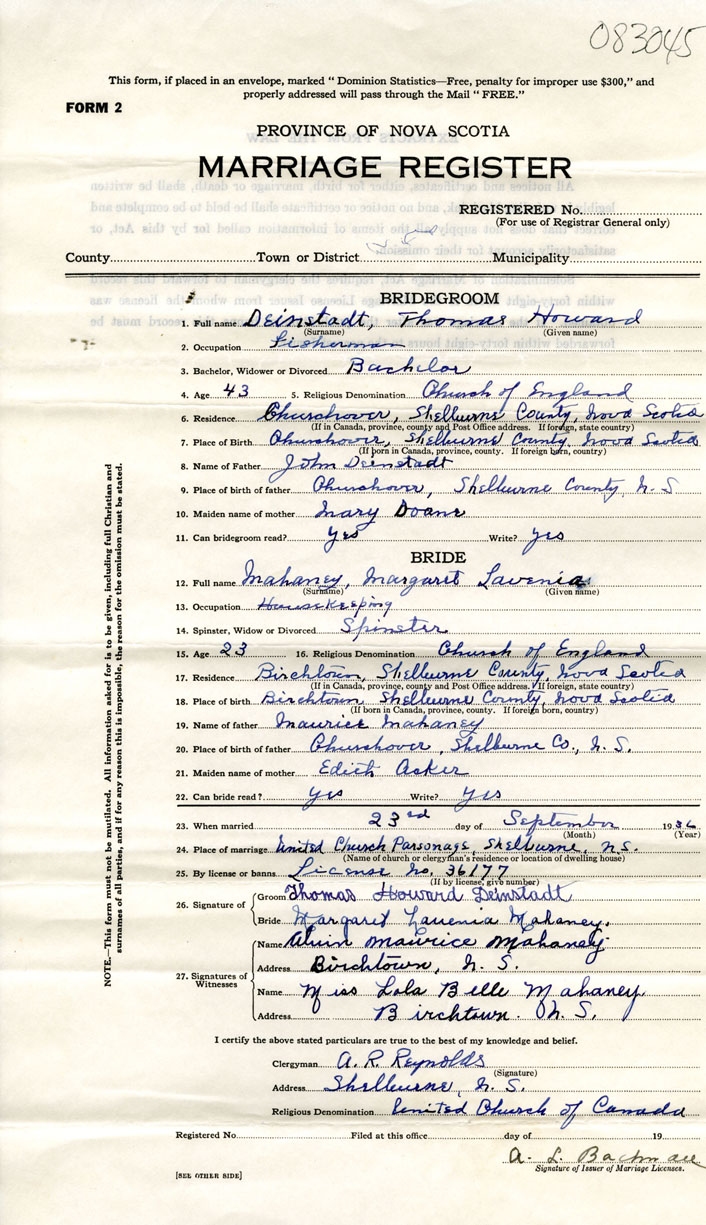 083045
This form, if placed in an envelope, marked " Dominion Statistics—Free, penalty for improper use $300," and
properly addressed will pass through the Mail " FREE."
FORM 2
PROVINCE OF NOVA SCOTIA
MARRIAGE REGISTER
REGISTERED No.
(For use of Registrar General only)
County Town or District Municipality
BRIDEGROOM
1. Full name Deinstadt, Thomas Howard
(Surname) (Given name)
2. Occupation Fisherman
3. Bachelor, Widower or Divorced Bachelor
4. Age 43 5. Religious Denomination Church of England
6. Residence Churchover, Shelburne County, Nova Scotia
(If in Canada, province, county and Post Office address. If foreign, state country)
7. Place of Birth Churchover, Shelburne County, Nova Scotia
(If born in Canada, province, county. If foreign born, country)
8. Name of Father John Deinstadt
9. Place of birth of father Churchover, Shelburne County, N. S
10. Maiden name of mother Mary Doane
11. Can bridegroom read? Yes Write? Yes
BRIDE
12. Full name Mahaney, Margaret Lavenia
(Surname) (Given name)
13. Occupation Housekeeping
14. Spinster, Widow or Divorced Spinster
15. Age 23 16. Religious Denomination Church of England
17. Residence Birchtown, Shelburne County, Nova Scotia
(If in Canada, province, county and Post Office address. If foreign, state country)
18. Place of Birth Birchtown, Shelburne County, Nova Scotia
(If born in Canada, province, county. If foreign born, country)
19. Name of father Maurice Mahaney
20. Place of birth of father Churchover, Shelburne Co., N. S.
21. Maiden name of mother Edith Acker
22. Can bride read? Yes Write? Yes
23. When married 23rd day of September 1936
(Month) (Year)
24. Place of marriage United Church Parsonage, Shelburne, N.S.
(Name of church or clergyman's residence or location of dwelling house)
25. By license or banns License No. 36177
(If by license, give number)
26. Signature of Groom Thomas Howard Deinstadt
Bride Margaret Lavenia Mahaney.
27. Signatures of Witnesses
Name Alvin Maurice Mahaney
Address Birchtown, N. S.
Name Miss Lola Belle Mahaney
Address Birchtown. N. S.
I certify the above stated particulars are true to the best of my knowledge and belief.
Clergyman A. R. Reynolds
(Signature)
Address Shelburne, N. S.
Religious Denomination United Church of Canada
Registered No. Filed at this office day of 19
A. L. Bachman
Signature of Issuer of Marriage Licenses.
[SEE OTHER SIDE]
NOTE.—This form must not be mutilated. All information asked for is to be given, including full Christian and
surnames of all parties, and if for any reason this is impossible, the reason for the omission must be stated.